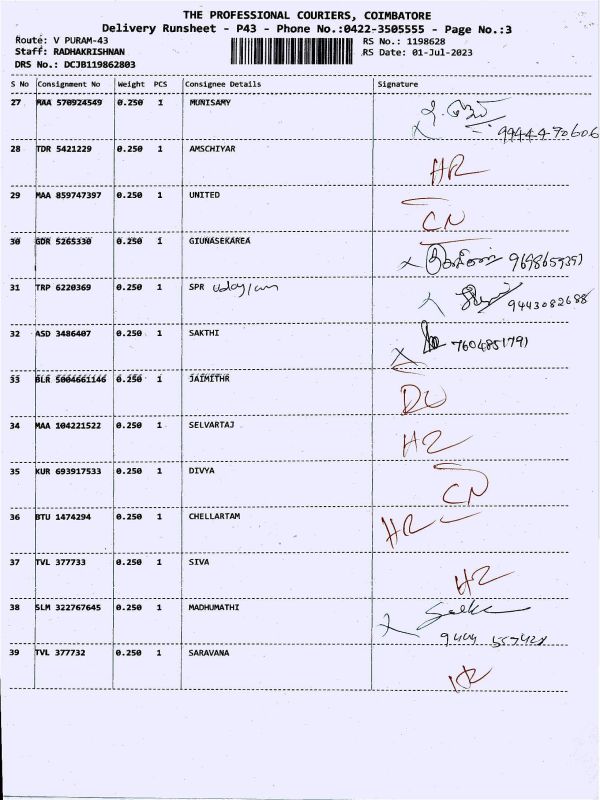 THE PROFESSIONAL COURIERS, COIMBATORE
Delivery Runsheet - P43 - Phone No.:0422-3505555 - Page No.:3
Route: V PURAM-43
RS No.: 1198628
Staff: RADHAKRISHNAN
RS Date: 01-Jul-2023
DRS No.: DCJB119862803
S No Consignment No Weight PCS Consignee Details Signature
27 MAA 570924549 0.250 1 MUNISAMY
99444-70606
28 TDR 5421229 0.250 1 AMSCHIYAR HR
29 MAA 859747397 0.250 1 UNITED CN
30 GDR 5265330 0.250 1 GIUNASEKAREA
31 TRP 6220369 0.250 1 SPR
9443082688
32 ASD 3486407 0.250 1 SAKTHI 7604851791
33 BLR 5004661146 0.250 1 JAIMITHR
34 MAA 104221522 0.250 1 SELVARTAJ
35 KUR 693917533 0.250 1 DIVYA CN
36 BTU 1474294 0.250 1 CHELLARTAM HR
37 TVL 377733 0.250 1 SIVA
38 SLM 322767645 0.250 1 MADHUMATHI
39 TVL 377732 0.250 1 SARAVANA